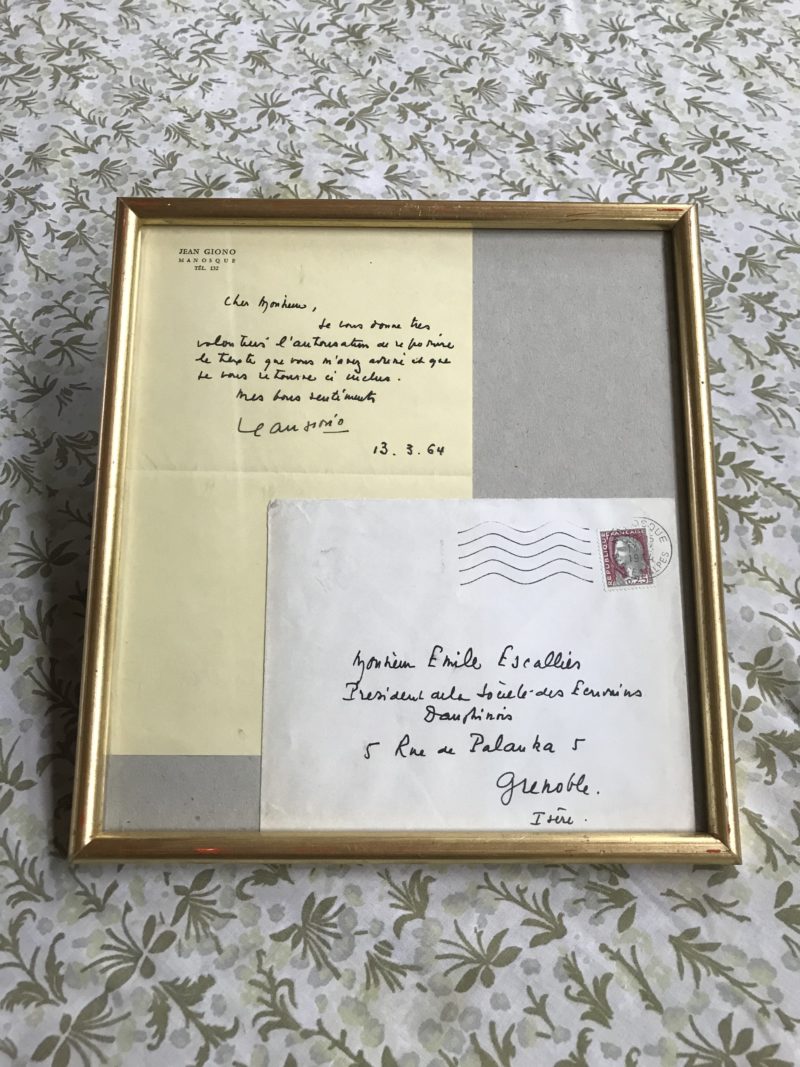 JEAN GIONO
MANOSQUE
TÉL. 132
Cher Monsieur,
Je vous donne tres
volontiers l'autorisation de
le texte que vous m'avez et que
je vous retourne ci inclus.
Mes bons sentiments
Jean Giono
13. 3. 64
OSQUE
ALPES
REPUBLIQUE FRANÇAISE
0,25
Monsieur Emile Escallier
President de la Société des Ecrivains
Dauphinois
5 Rue de Palanka 5
Grenoble.
Isère.